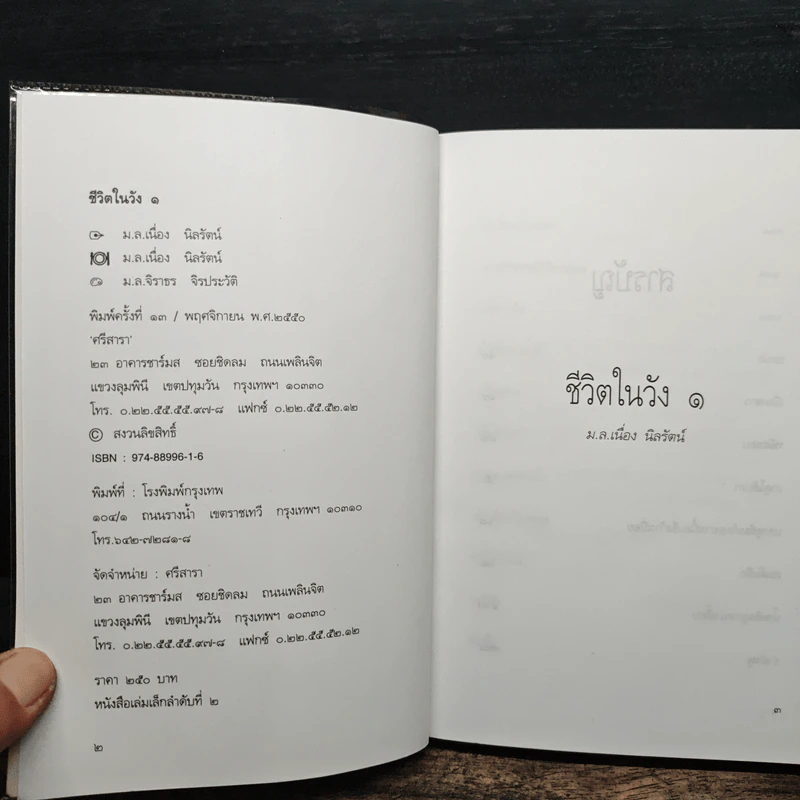 ชีวิตในวัง ๑
ม.ล.เนื่อง นิลรัตน์
ม.ล.เนื่อง นิลรัตน์
ม.ล.จิราธร จิรประวัติ
พิมพ์ครั้งที่ ๑๓ / พฤศจิกายน พ.ศ.๒๕๕๐
'ศรีสารา'
๒๓ อาคารชาร์มส ซอยชิดลม ถนนเพลินจิต
แขวงลุมพินี เขตปทุมวัน กรุงเทพฯ ๑๐๓๓๐
โทร. ๐.๒๒.๕๕.๕๕.๙๗-๘ แฟกซ์ ๐.๒๒.๕๕.๕๒.๑๒
© สงวนลิขสิทธิ์
ISBN : 974-88996-1-6
พิมพ์ที่ : โรงพิมพ์กรุงเทพ
๑๐๔/๑ ถนนรางน้ำ เขตราชเทวี กรุงเทพฯ ๑๐๓๑๐
โทร.๖๔๒-๗๒๘๑-๘
จัดจำหน่าย : ศรีสารา
๒๓ อาคารชาร์มส ซอยชิดลม ถนนเพลินจิต
แขวงลุมพินี เขตปทุมวัน กรุงเทพฯ ๑๐๓๓๐
โทร. ๐.๒๒.๕๕.๕๕.๙๗-๘ แฟกซ์ ๐.๒๒.๕๕.๕๒.๑๒
ราคา ๒๕๐ บาท
หนังสือเล่มเล็กลำดับที่ ๒
๒
สารบัญ
ชีวิตในวัง ๑
ม.ล.เนื่อง นิลรัตน์
๓